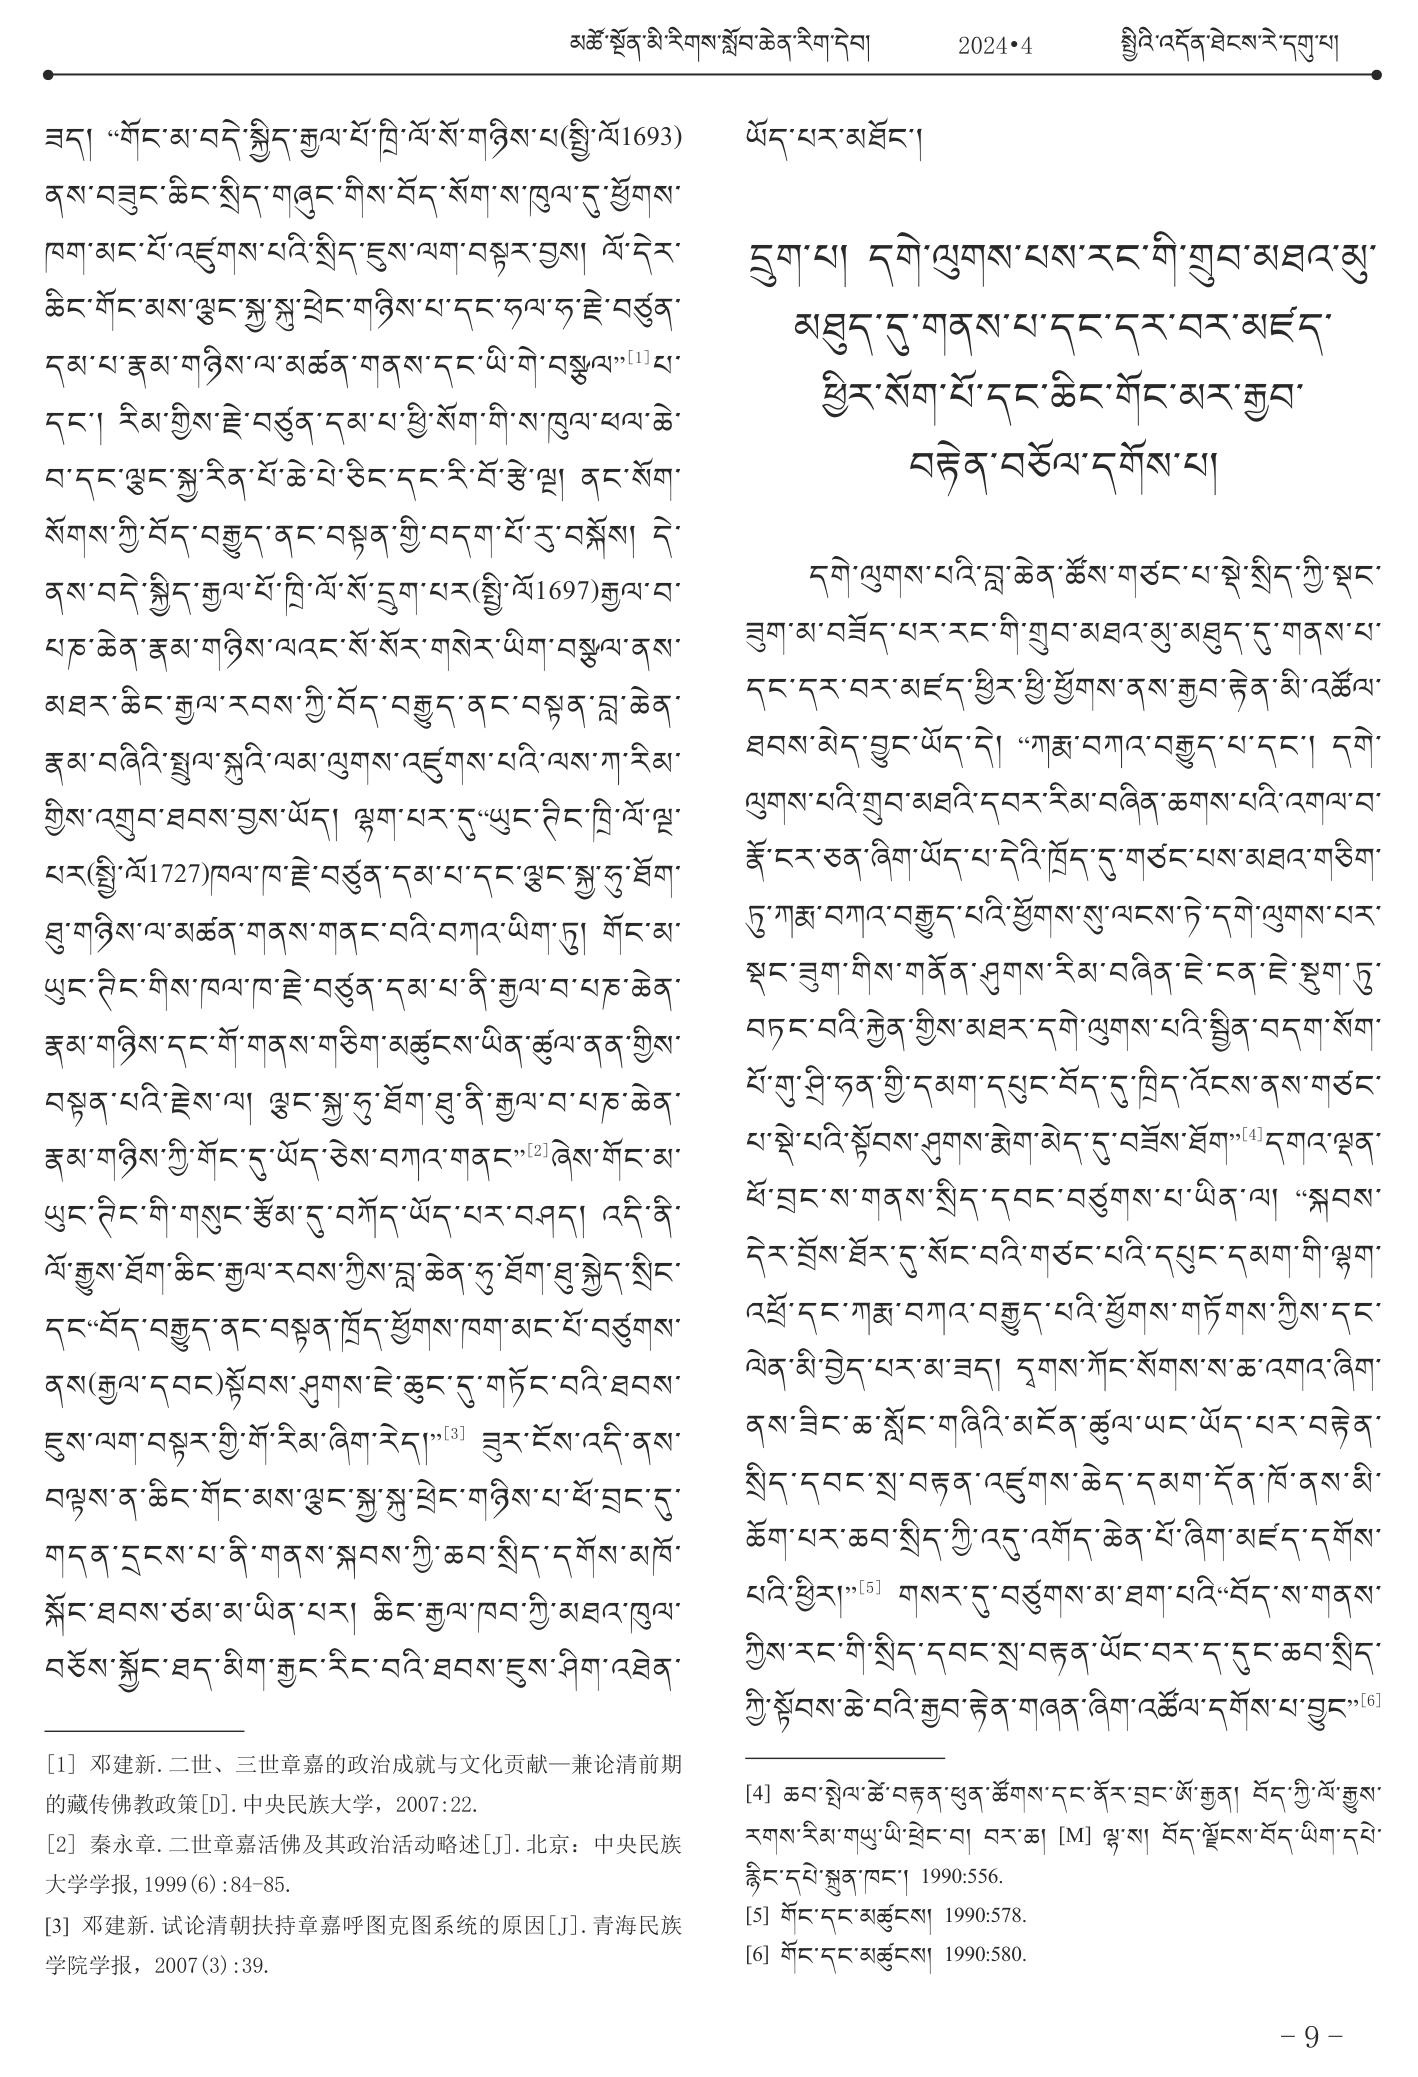 མཚོ་སྔོན་མི་རིགས་སློབ་ཆེན་རིག་དེབ། 2024•4 སྤྱིའི་འདོན་ཐེངས་རེ་དགུ་པ།
ཟད། “གོང་མ་བདེ་སྐྱིད་རྒྱལ་པོ་ཁྲི་ལོ་སོ་གཉིས་པ(སྤྱི་ལོ1693)
ནས་བཟུང་ཆིང་སྲིད་གཞུང་གིས་བོད་སོག་ས་ཁུལ་དུ་ཕྱོགས་
ཁག་མང་པོ་འཛུགས་པའི་སྲིད་ཇུས་ལག་བསྟར་བྱས། ལོ་དེར་
ཆིང་གོང་མས་ལྕང་སྐྱ་སྐུ་ཕྲེང་གཉིས་པ་དང་ཧལ་ཧ་རྗེ་བཙུན་
དམ་པ་རྣམ་གཉིས་ལ་མཚན་གནས་དང་ཡི་གེ་བསྩལ”[1]པ་
དང་། རིམ་གྱིས་རྗེ་བཙུན་དམ་པ་ཕྱི་སོག་གི་ས་ཁུལ་ཕལ་ཆེ་
བ་དང་ལྕང་སྐྱ་རིན་པོ་ཆེ་པེ་ཅིང་དང་རི་བོ་རྩེ་ལྔ། ནང་སོག་
སོགས་ཀྱི་བོད་བརྒྱུད་ནང་བསྟན་གྱི་བདག་པོ་རུ་བསྐོས། དེ་
ནས་བདེ་སྐྱིད་རྒྱལ་པོ་ཁྲི་ལོ་སོ་དྲུག་པར(སྤྱི་ལོ1697)རྒྱལ་བ་
པཎ་ཆེན་རྣམ་གཉིས་ལའང་སོ་སོར་གསེར་ཡིག་བསྩལ་ནས་
མཐར་ཆིང་རྒྱལ་རབས་ཀྱི་བོད་བརྒྱུད་ནང་བསྟན་བླ་ཆེན་
རྣམ་བཞིའི་སྤྲུལ་སྐུའི་ལམ་ལུགས་འཛུགས་པའི་ལས་ཀ་རིམ་
གྱིས་འགྲུབ་ཐབས་བྱས་ཡོད། ལྷག་པར་དུ“ཡུང་ཊིང་ཁྲི་ལོ་ལྔ་
པར(སྤྱི་ལོ1727)ཁལ་ཁ་རྗེ་བཙུན་དམ་པ་དང་ལྕང་སྐྱ་ཧུ་ཐོག་
ཐུ་གཉིས་ལ་མཚན་གནས་གནང་བའི་བཀའ་ཡིག་ཏུ། གོང་མ་
ཡུང་ཊིང་གིས་ཁལ་ཁ་རྗེ་བཙུན་དམ་པ་ནི་རྒྱལ་བ་པཎ་ཆེན་
རྣམ་གཉིས་དང་གོ་གནས་གཅིག་མཚུངས་ཡིན་ཚུལ་ནན་གྱིས་
བསྟན་པའི་རྗེས་ལ། ལྕང་སྐྱ་ཧུ་ཐོག་ཐུ་ནི་རྒྱལ་བ་པཎ་ཆེན་
རྣམ་གཉིས་ཀྱི་གོང་དུ་ཡོད་ཅེས་བཀའ་གནང”[2]ཞེས་གོང་མ་
ཡུང་ཊིང་གི་གསུང་རྩོམ་དུ་བཀོད་ཡོད་པར་བཤད། འདི་ནི་
ལོ་རྒྱུས་ཐོག་ཆིང་རྒྱལ་རབས་ཀྱིས་བླ་ཆེན་ཧུ་ཐོག་ཐུ་སྐྱེད་སྲིང་
དང“བོད་བརྒྱུད་ནང་བསྟན་ཁྲོད་ཕྱོགས་ཁག་མང་པོ་བཙུགས་
ནས(རྒྱལ་དབང)སྟོབས་ཤུགས་ཇེ་ཆུང་དུ་གཏོང་བའི་ཐབས་
ཇུས་ལག་བསྟར་གྱི་གོ་རིམ་ཞིག་རེད།”[3] ཟུར་ངོས་འདི་ནས་
བལྟས་ན་ཆིང་གོང་མས་ལྕང་སྐྱ་སྐུ་ཕྲེང་གཉིས་པ་ཕོ་བྲང་དུ་
གདན་དྲངས་པ་ནི་གནས་སྐབས་ཀྱི་ཆབ་སྲིད་དགོས་མཁོ་
སྐོང་ཐབས་ཙམ་མ་ཡིན་པར། ཆིང་རྒྱལ་ཁབ་ཀྱི་མཐའ་ཁུལ་
བཅོས་སྐྱོང་ཐད་མིག་རྒྱང་རིང་བའི་ཐབས་ཇུས་ཤིག་འཐེན་
[1] 邓建新.二世、三世章嘉的政治成就与文化贡献—兼论清前期
的藏传佛教政策[D].中央民族大学，2007:22.
[2] 秦永章.二世章嘉活佛及其政治活动略述[J].北京：中央民族
大学学报,1999(6):84-85.
[3] 邓建新.试论清朝扶持章嘉呼图克图系统的原因[J].青海民族
学院学报，2007(3):39.
ཡོད་པར་མཐོང་།
དྲུག་པ། དགེ་ལུགས་པས་རང་གི་གྲུབ་མཐའ་མུ་
མཐུད་དུ་གནས་པ་དང་དར་བར་མཛད་
ཕྱིར་སོག་པོ་དང་ཆིང་གོང་མར་རྒྱབ་
བརྟེན་བཅོལ་དགོས་པ།
དགེ་ལུགས་པའི་བླ་ཆེན་ཚོས་གཙང་པ་སྡེ་སྲིད་ཀྱི་སྡང་
ཟུག་མ་བཟོད་པར་རང་གི་གྲུབ་མཐའ་མུ་མཐུད་དུ་གནས་པ་
དང་དར་བར་མཛད་ཕྱིར་ཕྱི་ཕྱོགས་ནས་རྒྱབ་རྟེན་མི་འཚོལ་
ཐབས་མེད་བྱུང་ཡོད་དེ། “ཀརྨ་བཀའ་བརྒྱུད་པ་དང་། དགེ་
ལུགས་པའི་གྲུབ་མཐའི་དབར་རིམ་བཞིན་ཆགས་པའི་འགལ་བ་
རྣོ་ངར་ཅན་ཞིག་ཡོད་པ་དེའི་ཁྲོད་དུ་གཙང་པས་མཐའ་གཅིག་
ཏུ་ཀརྨ་བཀའ་བརྒྱུད་པའི་ཕྱོགས་སུ་ལངས་ཏེ་དགེ་ལུགས་པར་
སྡང་ཟུག་གིས་གནོན་ཤུགས་རིམ་བཞིན་ཇེ་ངན་ཇེ་སྡུག་ཏུ་
བཏང་བའི་རྐྱེན་གྱིས་མཐར་དགེ་ལུགས་པའི་སྦྱིན་བདག་སོག་
པོ་གུ་ཤྲི་ཧན་གྱི་དམག་དཔུང་བོད་དུ་ཁྲིད་འོངས་ནས་གཙང་
པ་སྡེ་པའི་སྟོབས་ཤུགས་རྨེག་མེད་དུ་བཟོས་ཐོག”[4]དགའ་ལྡན་
ཕོ་བྲང་ས་གནས་སྲིད་དབང་བཙུགས་པ་ཡིན་ལ། “སྐབས་
དེར་བྲོས་ཐོར་དུ་སོང་བའི་གཙང་པའི་དཔུང་དམག་གི་ལྷག་
འཕྲོ་དང་ཀརྨ་བཀའ་བརྒྱུད་པའི་ཕྱོགས་གཏོགས་ཀྱིས་དང་
ལེན་མི་བྱེད་པར་མ་ཟད། དྭགས་ཀོང་སོགས་ས་ཆ་འགའ་ཞིག་
ནས་ཟིང་ཆ་སློང་གཞིའི་མངོན་ཚུལ་ཡང་ཡོད་པར་བརྟེན་
སྲིད་དབང་སྲ་བརྟན་འཛུགས་ཆེད་དམག་དོན་ཁོ་ནས་མི་
ཆོག་པར་ཆབ་སྲིད་ཀྱི་འདུ་འགོད་ཆེན་པོ་ཞིག་མཛད་དགོས་
པའི་ཕྱིར།”[5] གསར་དུ་བཙུགས་མ་ཐག་པའི“བོད་ས་གནས་
ཀྱིས་རང་གི་སྲིད་དབང་སྲ་བརྟན་ཡོང་བར་ད་དུང་ཆབ་སྲིད་
ཀྱི་སྟོབས་ཆེ་བའི་རྒྱབ་རྟེན་གཞན་ཞིག་འཚོལ་དགོས་པ་བྱུང”[6]
[4] ཆབ་སྤེལ་ཚེ་བརྟན་ཕུན་ཚོགས་དང་ནོར་བྲང་ཨོ་རྒྱན། བོད་ཀྱི་ལོ་རྒྱུས་
རགས་རིམ་གཡུ་ཡི་ཕྲེང་བ། བར་ཆ། [M] ལྷ་ས། བོད་ལྗོངས་བོད་ཡིག་དཔེ་
རྙིང་དཔེ་སྐྲུན་ཁང་། 1990:556.
[5] གོང་དང་མཚུངས། 1990:578.
[6] གོང་དང་མཚུངས། 1990:580.
- 9 -